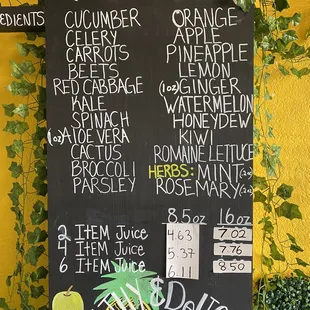 EDIENTS
CUCUMBER
CELERY
CARROTS
BEETS
RED CABBAGE
KALE
SPINACH
(1oz) ALOE VERA
CACTUS
BROCCOLI
PARSLEY
ORANGE
APPLE
PINEAPPLE
LEMON
(1oz) GINGER
WATERMELON
HONEYDEW
KIWI
ROMAINE LETTUCE
HERBS: MINT
ROSEMARY
8.5oz 16oz
2 ITEM JUICE 4.63 7.02
4 ITEM JUICE 5.37 7.76
6 ITEM JUICE 6.11 8.50